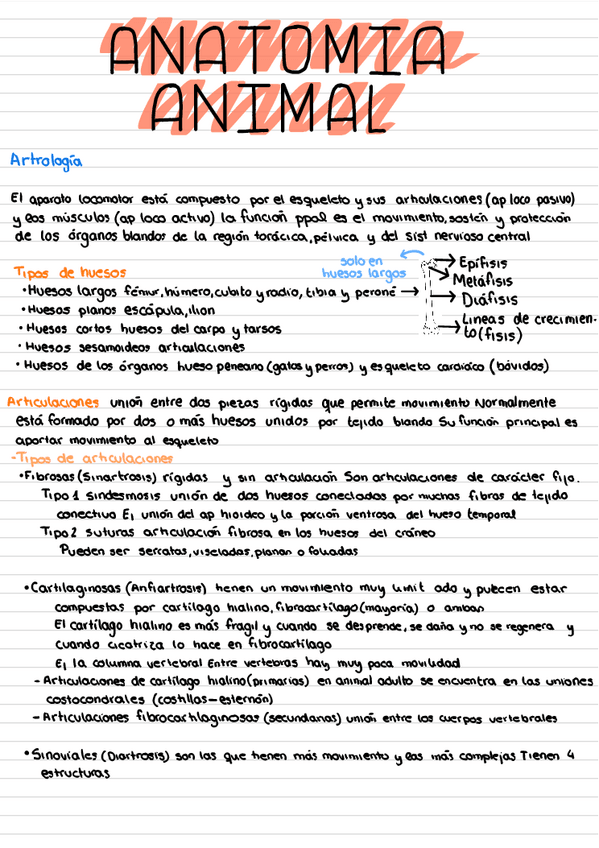 ANATOMIA
ANIMAL
Artrología
El aparato locomotor está compuesto por el esqueleto y sus articulaciones (ap loco pasivo)
y los músculos (ap loco activo) la función ppal es el movimiento, sostén y protección
de los órganos blandos de la región torácica, pélvica y del sist nervioso central
Tipos de huesos
solo en
huesos largos
Epífisis
Metáfisis
Diáfisis
Líneas de crecimien-
to (fisis)
• Huesos largos fémur, húmero, cubito y radio, tibia y peroné →
• Huesos planos escápula, ilion
• Huesos cortos huesos del carpo y tarsos
• Huesos sesamoideos articulaciones
• Huesos de los órganos hueso peneano (gatos y perros) y esqueleto cardiaco (bóvidos)
Articulaciones unión entre dos piezas rígidas que permite movimiento Normalmente
está formado por dos o más huesos unidos por tejido blando Su función principal es
aportar movimiento al esqueleto
- Tipos de articulaciones
• Fibrosas (Sinartrosis) rígidas y sin articulación Son articulaciones de carácter fijo.
Tipo 1 Sindesmosis unión de dos huesos conectados por muchas fibras de tejido
conectivo Ej unión del ap hioideo y la porción ventrosa del hueso temporal
Tipo 2 suturas articulación fibrosa en los huesos del cráneo
Pueden ser serratas, viseladas, planas o foliadas
• Cartilaginosas (Anfiartrosis) tienen un movimiento muy limit ado y pueden estar
compuestas por cartílago hialino, fibrocartílago (mayoría) o ambas
El cartílago hialino es más fragil y cuando se desprende, se daña y no se regenera y
cuando cicatriza lo hace en fibrocartílago
Ej la columna vertebral Entre vertebras hay muy poca movilidad
- Articulaciones de cartílago hialino (primarias) en animal adulto se encuentra en las uniones
costocondrales (costillas-esternón)
- Articulaciones fibrocartilaginosas (secundarias) unión entre los cuerpos vertebrales
• Sinoviales (Diartrosis) son las que tienen más movimiento y las más complejas Tienen 4
estructuras